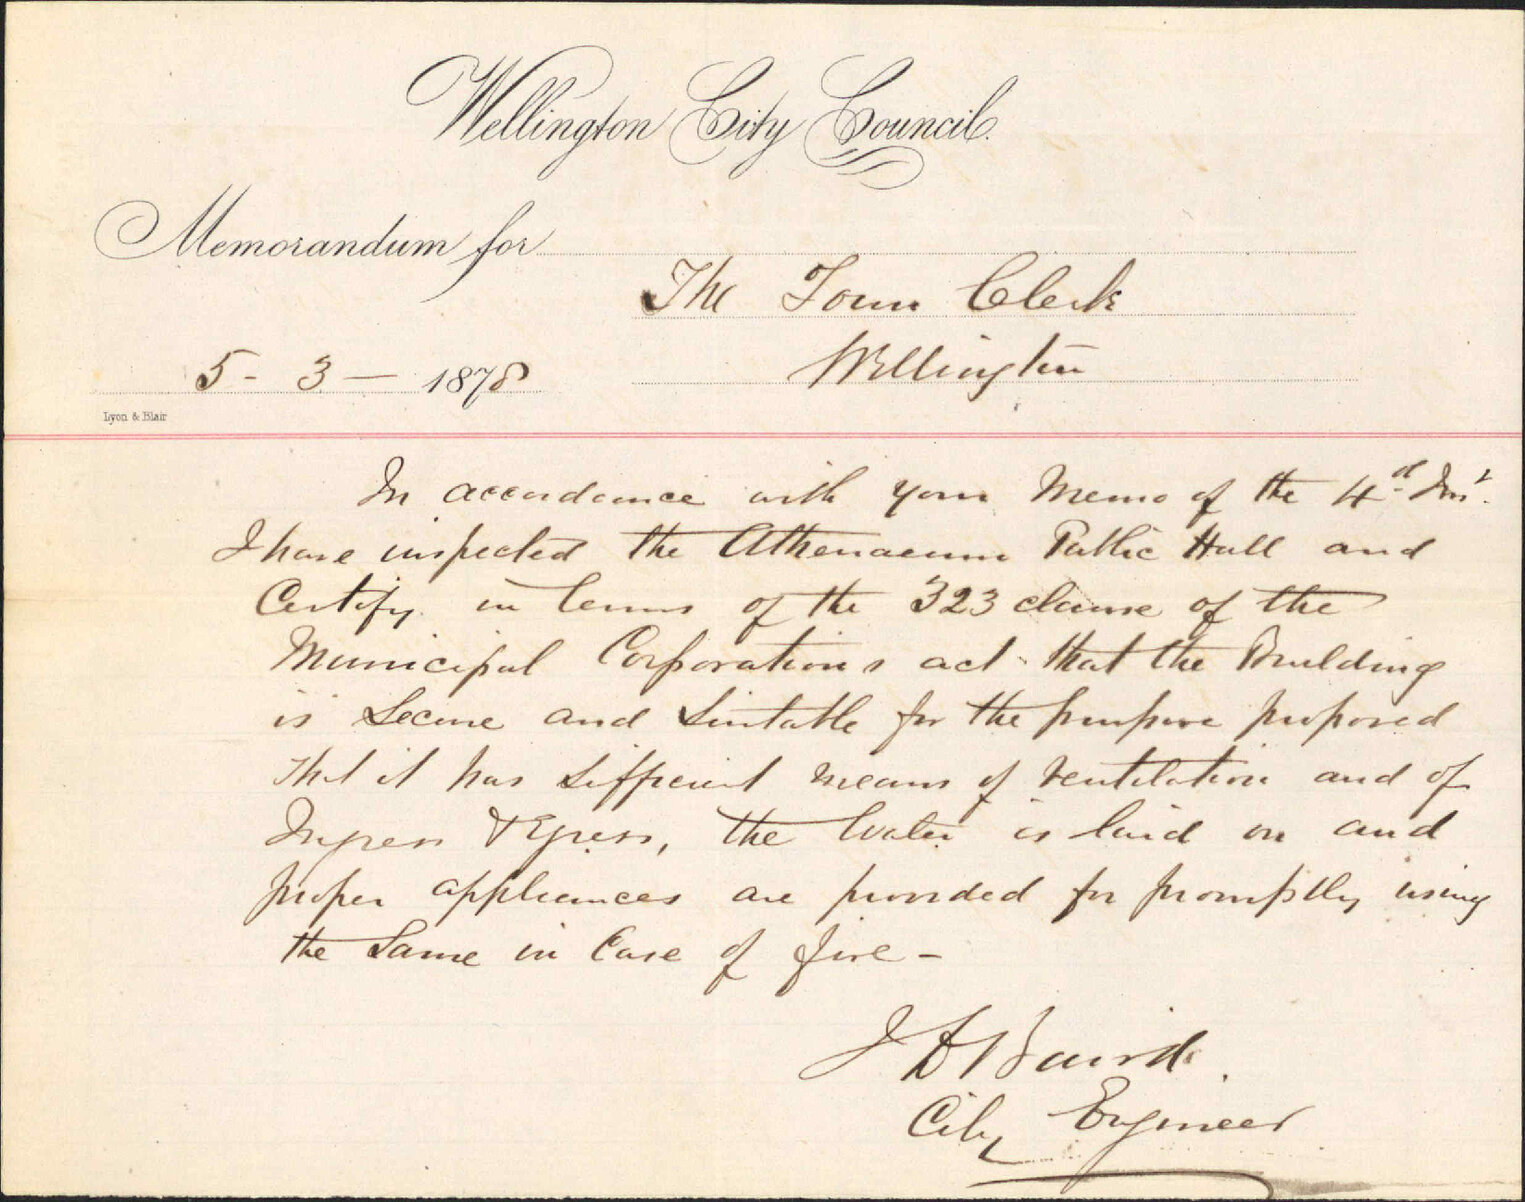 Wellington City Council.
Memorandum for
The Town Clerk
Wellington
5 - 3 — 1878
Lyon & Blair
In accordance with your Memo of the 4d Inst.
I have inspected the Athenaeum Public Hall and
Certify in terms of the 323 clause of the
Municipal Corporations act that the Building
is Secure and Suitable for the purpose proposed
that it has sifficient means of ventilation and of
Ingress & Egress, the Water is laid on and
proper appliances are provided for promptly using
the Same in Case of fire -
J D Baird.
City Engineer